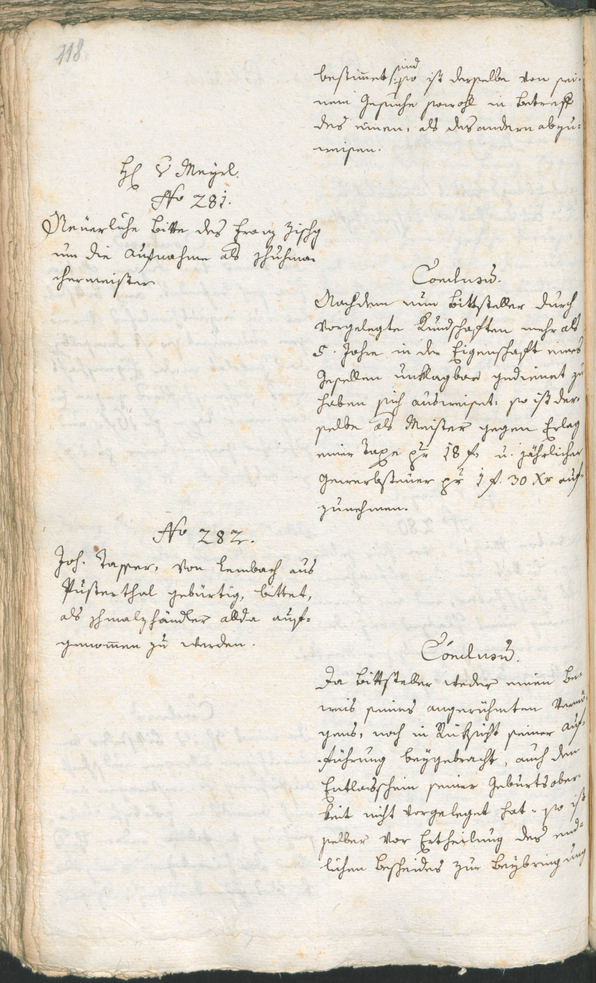 118.
bestimmet sind, so ist derselbe von sei-
nem Gesuche sowohl in Betreff
des einen, als des andern abzu-
weisen.
H. v Mayrl.
No 281.
Neuerliche Bitte des Franz Zischg
um die Aufnahme als Schuhma-
chermeister
Conclusum.
Nachdem nun Bittsteller durch
vorgelegte Kundschaften mehr als
5. Jahre in der Eigenschaft eines
Gesellen unklagbar gedienet zu
haben sich ausweiset: so ist der-
selbe als Meister gegen Erlag
einer Taxe pr 18 f. u. jährlicher
Gewerbsteuer pr 1 f. 30 Xr auf-
zunehmen.
No 282.
Joh. Tasser, von Lembach aus
Pusterthal gebürtig, bittet,
als Schmalzhändler allda auf-
genommen zu werden.
Conclusum.
Da Bittsteller weder einen Be-
weis seines angerühmten Vermö-
gens, noch in Rücksicht seiner Auf-
führung beygebracht, auch den
Entlassschein seiner Geburtsober-
keit nicht vorgeleget hat: so ist
selber vor Ertheilung des end-
lichen Bescheides zur Beybringung